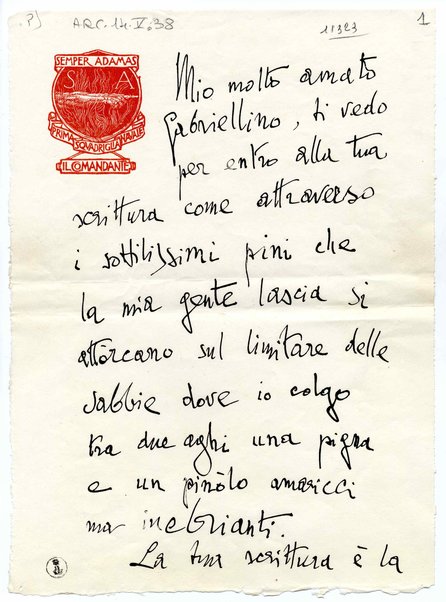 P)
ARC. 14. V, 38
11323
1
SEMPER ADAMAS
S A
PRIMA SQUADRIGLIA NAVALE
IL COMANDANTE
Mio molto amato
Gabriellino, ti vedo
per entro alla tua
scrittura come attraverso
i sottilissimi pini che
la mia gente lascia si
attòrcano sul limitare delle
sabbie dove io colgo
tra due aghi una pigna
e un pinòlo amaricci
ma inebrianti.
La tua scrittura è la